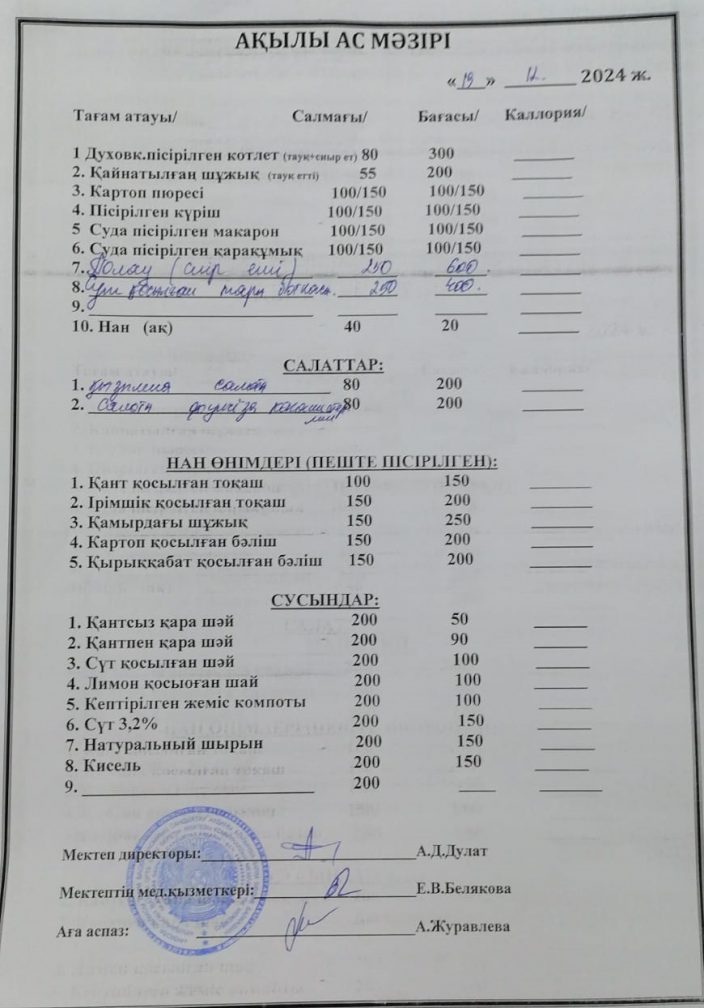 АҚЫЛЫ АС МӘЗІРІ
«19» 12. 2024 ж.
Тағам атауы/ Салмағы/ Бағасы/ Каллория/
1 Духовк.пісірілген котлет (тауқ+сиыр ет) 80 300
2. Қайнатылған шұжық (тауқ етті) 55 200
3. Картоп пюресі 100/150 100/150
4. Пісірілген күріш 100/150 100/150
5 Суда пісірілген макарон 100/150 100/150
6. Суда пісірілген қарақұмық 100/150 100/150
7. Полау (сиыр еті) 250 600.
8. тары 250 400.
9.
10. Нан (ақ) 40 20
САЛАТТАР:
1. қызылша салата 80 200
2. Салата 80 200
НАН ӨНІМДЕРІ (ПЕШТЕ ПІСІРІЛГЕН):
1. Қант қосылған тоқаш 100 150
2. Ірімшік қосылған тоқаш 150 200
3. Қамырдағы шұжық 150 250
4. Картоп қосылған бәліш 150 200
5. Қырыққабат қосылған бәліш 150 200
СУСЫНДАР:
1. Қантсыз қара шәй 200 50
2. Қантпен қара шәй 200 90
3. Сүт қосылған шәй 200 100
4. Лимон қосыоған шай 200 100
5. Кептірілген жеміс компоты 200 100
6. Сүт 3,2% 200 150
7. Натуральный шырын 200 150
8. Кисель 200 150
9. 200
Мектеп директоры: А.Д.Дулат
Мектептің мед.қызметкері: Е.В.Белякова
Аға аспаз: А.Журавлева